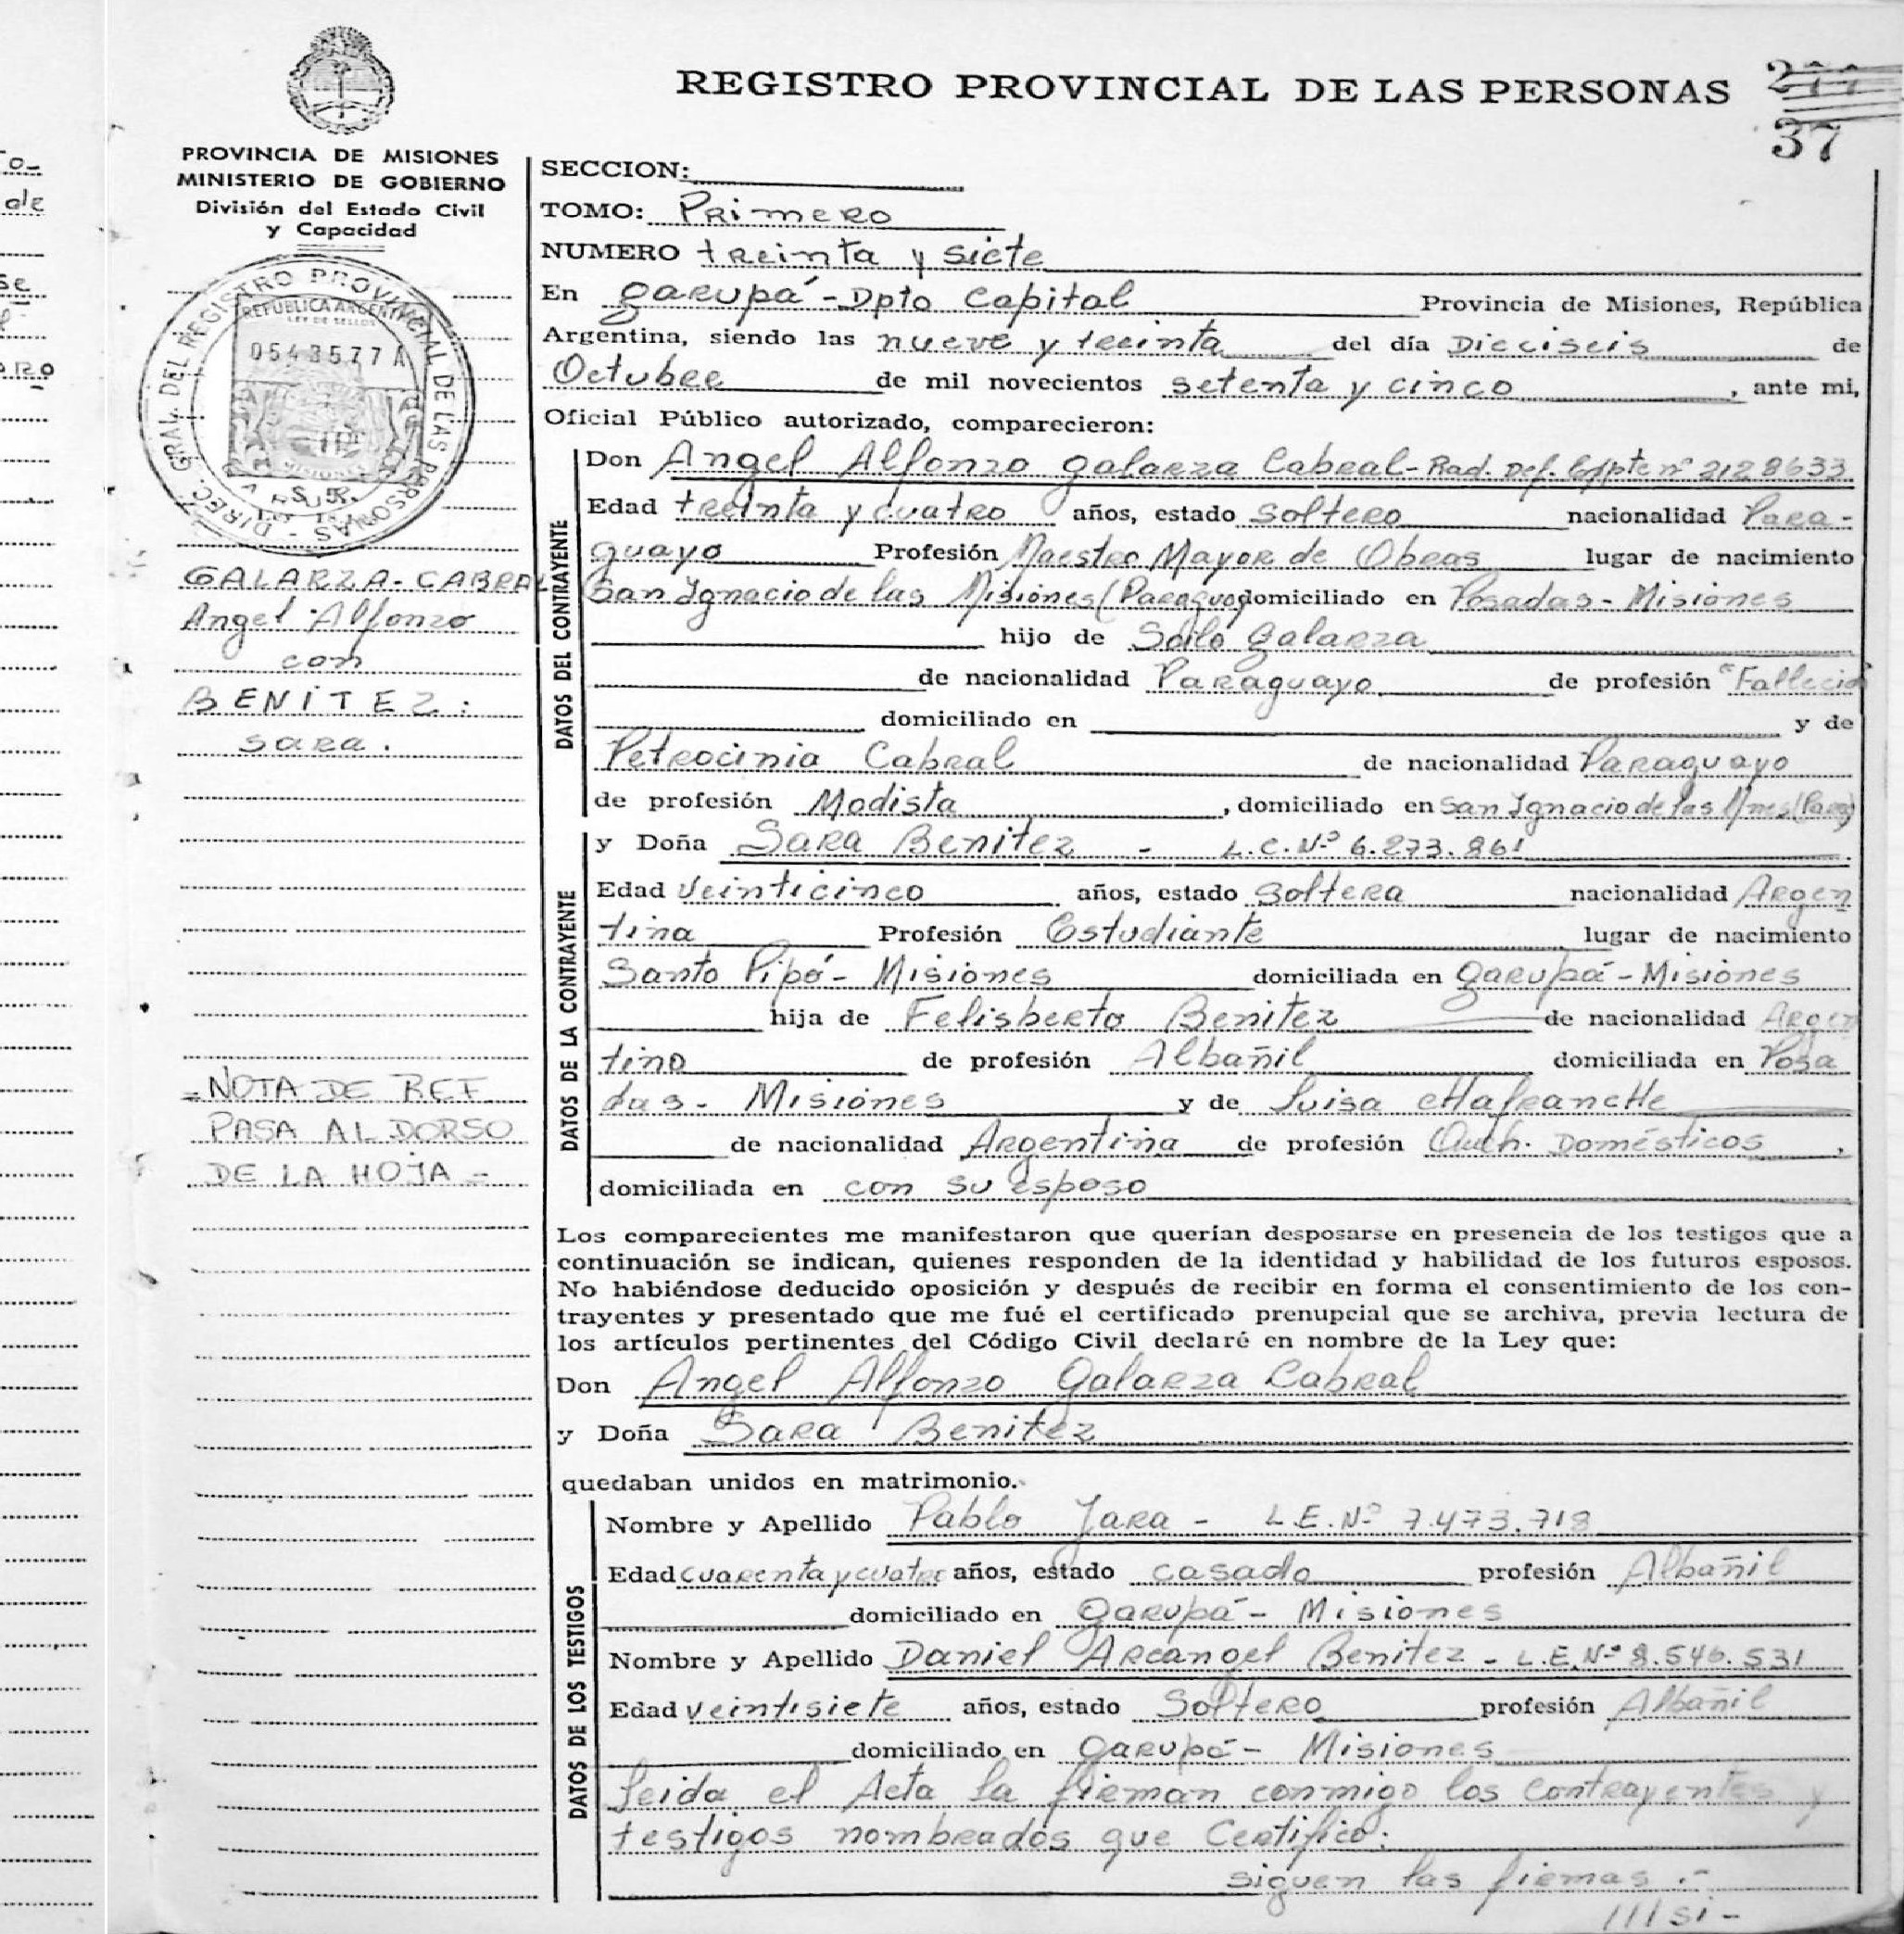 REGISTRO PROVINCIAL DE LAS PERSONAS
37
PROVINCIA DE MISIONES
MINISTERIO DE GOBIERNO
División del Estado Civil
y Capacidad
DIREC. GRAL. DEL REGISTRO PROVINCIAL DE LAS PERSONAS
REPUBLICA ARGENTINA
LEY DE SELLOS
0543577 A
MISIONES
GALARZA-CABRAL
Angel Alfonzo
con
BENITEZ:
Sara.
=NOTA DE REF
PASA AL DORSO
DE LA HOJA=
SECCION:
TOMO: Primero
NUMERO treinta y siete
En Garupá-Dpto Capital Provincia de Misiones, República
Argentina, siendo las nueve y treinta del día Dieciseis de
Octubre de mil novecientos setenta y cinco, ante mi,
Oficial Público autorizado, comparecieron:
DATOS DEL CONTRAYENTE
Don Angel Alfonzo Galarza Cabral-Rad. Def. Expte nº 2128633
Edad treinta y cuatro años, estado Soltero nacionalidad Para-
guayo Profesión Maestro Mayor de Obras lugar de nacimiento
San Ignacio de las Misiones (Paraguay) domiciliado en Posadas-Misiones
hijo de Galarza
de nacionalidad Paraguayo de profesión "Fallecid
domiciliado en y de
Petrocinia Cabral de nacionalidad Paraguayo
de profesión Modista, domiciliado en San Ignacio de las Mnes (Parag)
DATOS DE LA CONTRAYENTE
y Doña Sara Benitez - L.C. Nº 6.273.861
Edad Veinticinco años, estado Soltera nacionalidad Argen
tina Profesión Estudiante lugar de nacimiento
Santo Pipó-Misiones domiciliada en Garupá-Misiones
hija de Felisberto Benitez de nacionalidad Argen
tino de profesión Albañil domiciliada en Posa
das-Misiones y de Luisa
de nacionalidad Argentina de profesión Queh. Domésticos,
domiciliada en con su esposo
Los comparecientes me manifestaron que querían desposarse en presencia de los testigos que a
continuación se indican, quienes responden de la identidad y habilidad de los futuros esposos.
No habiéndose deducido oposición y después de recibir en forma el consentimiento de los con-
trayentes y presentado que me fué el certificado prenupcial que se archiva, previa lectura de
los artículos pertinentes del Código Civil declaré en nombre de la Ley que:
Don Angel Alfonzo Galarza Cabral
y Doña Sara Benitez
quedaban unidos en matrimonio.
DATOS DE LOS TESTIGOS
Nombre y Apellido Pablo Jara - L.E. Nº 7.473.718
Edad cuarenta y cuatro años, estado casado profesión Albañil
domiciliado en Garupá-Misiones
Nombre y Apellido Daniel Arcangel Benitez - L.E. Nº 8.546.531
Edad veintisiete años, estado Soltero profesión Albañil
domiciliado en Garupá-Misiones
Leida el Acta la firman conmigo los contrayentes y
testigos nombrados que Certifico:
siguen las firmas.-
///si-